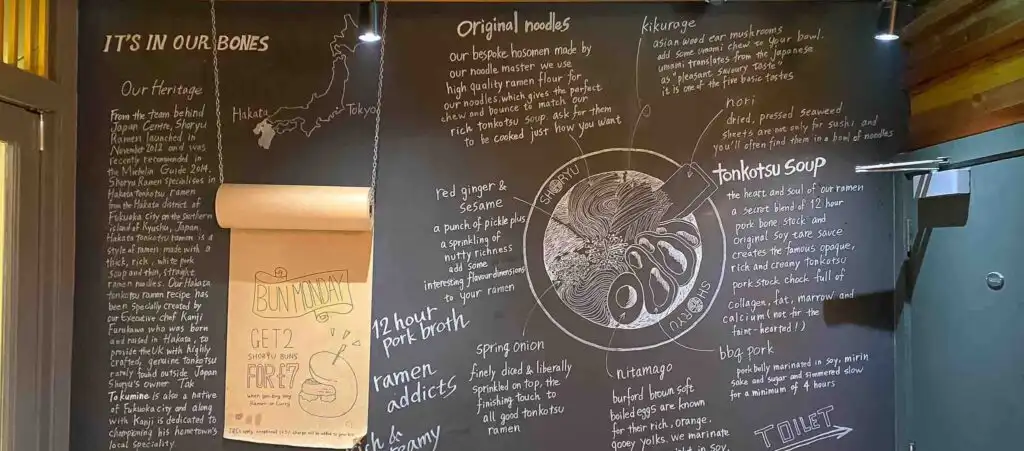 IT'S IN OUR BONES
Our Heritage
From the team behind
Japan Centre, Shoryu
Ramen launched in
November 2012 and was
recently recommended in
the Michelin Guide 2014.
Shoryu Ramen specialises in
Hakata tonkotsu ramen
from the Hakata district of
Fukuoka city on the southern
island of Kyushu, Japan.
Hakata tonkotsu ramen is a
style of ramen made with a
thick, rich, white pork
soup and thin, straight
ramen noodles. Our Hakata
tonkotsu ramen recipe has
been specially created by
our Executive chef Kanji
Furukawa who was born
and raised in Hakata, to
provide the UK with highly
crafted, genuine tonkotsu
rarely found outside Japan
Shoryu's owner Tak
Tokumine is also a native
of Fukuoka city and along
with Kanji is dedicated to
championing his hometown's
local speciality.
Hakata
Tokyo
BUN MONDAY
GET 2
SHORYU BUNS
FOR £7
when you buy any
Ramen or Curry
12 hour
pork broth
ramen
addicts
Original noodles
our bespoke hosomen made by
our noodle master we use
high quality ramen flour for
our noodles, which gives the perfect
chew and bounce to match our
rich tonkotsu soup. ask for them
to be cooked just how you want
red ginger &
sesame
a punch of pickle plus
a sprinkling of
nutty richness
add some
interesting flavour dimensions
to your ramen
spring onion
finely diced & liberally
sprinkled on top, the
finishing touch to
all good tonkotsu
ramen
SHORYU
SHORYU
kikurage
asian wood ear mushrooms
add some umami chew to your bowl.
umami translates from the Japanese
as "pleasant savoury taste"
it is one of the five basic tastes
nori
dried, pressed seaweed
sheets are not only for sushi, and
you'll often find them in a bowl of noodles
tonkotsu soup
the heart and soul of our ramen
a secret blend of 12 hour
pork bone stock and
original soy tare sauce
creates the famous opaque,
rich and creamy tonkotsu
pork stock chock full of
collagen, fat, marrow and
calcium (not for the
faint-hearted!)
bbq pork
pork belly marinated in soy, mirin
sake and sugar and simmered slow
for a minimum of 4 hours
nitamago
burford brown soft
boiled eggs are known
for their rich, orange,
gooey yolks. we marinate
in soy,
TOILET